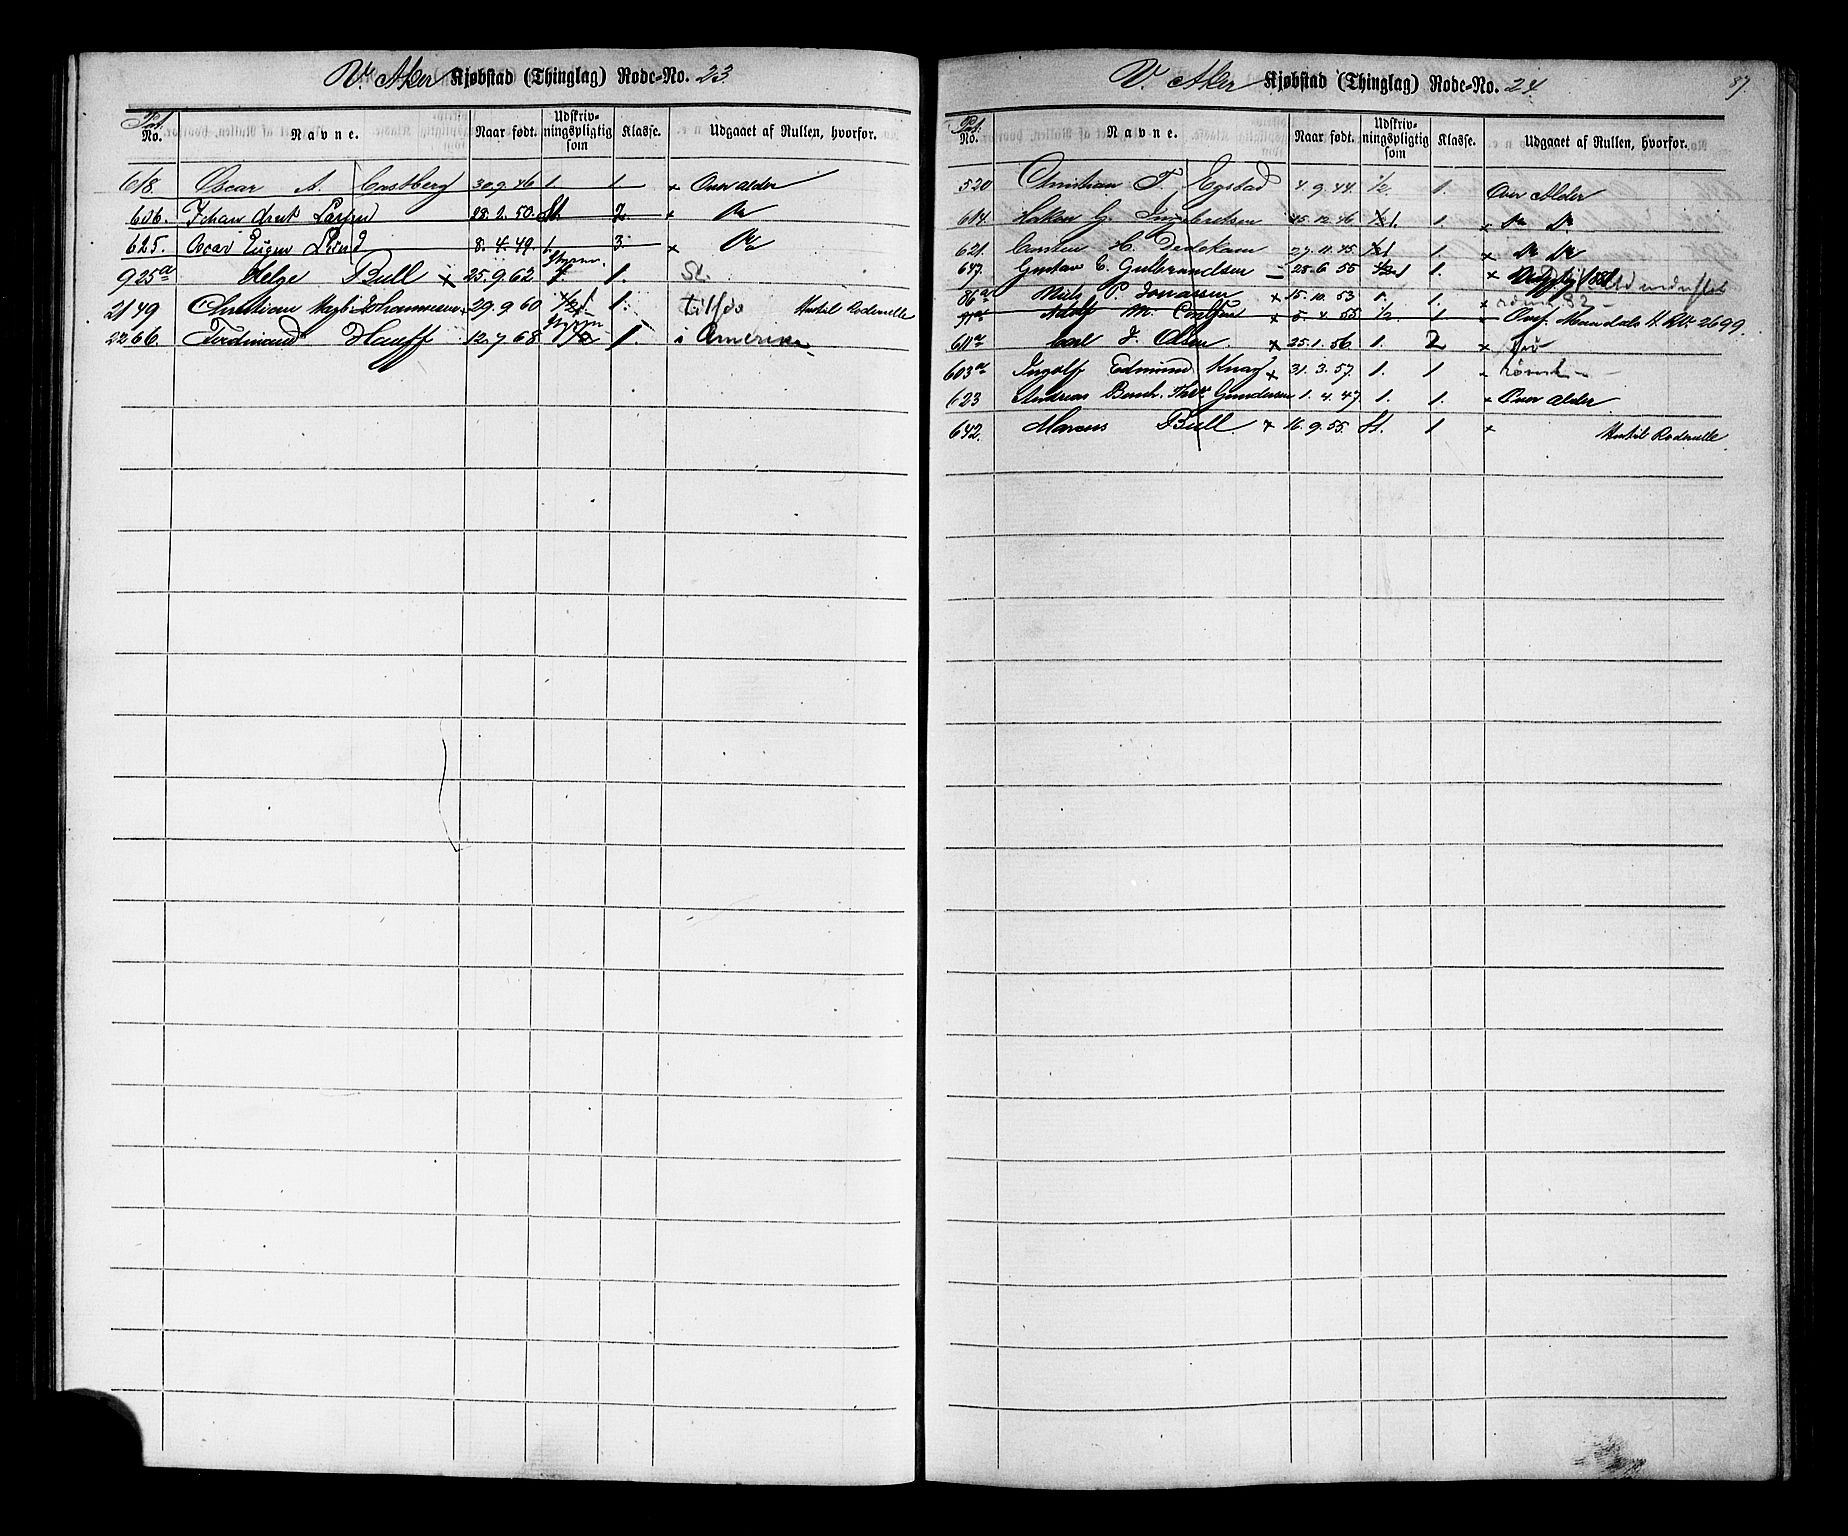 V. Aker Kjøbstad (Thinglag) Rode-No. 23
Pat. No. Navne. Naar født. Udskrivningspligtig som Klasse. Udgaaet af Rullen, hvorfor.
618. Oscar A. Castberg 30.9.46 1. 1 × Over alder
606. Johan Larsen 28.2.50. St. 2 × Do
625. Oscar Eugen Lund 8.4.49. 1. 3 × Do
925a Helge Bull × 25.9.62 1. St.
2149 Christian Johannesen 29.9.60 1. tilsøs
2266. Ferdinand Hauff 12.7.68 1. i Amerika
V. Aker Kjøbstad (Thinglag) Rode-No. 24
87
Pat. No. Navne. Naar født. Udskrivningspligtig som Klasse. Udgaaet af Rullen, hvorfor.
520 Christian T. Egstad 4.9.44 1/2 1. Over Alder
604. Haken G. Ingebretsen 15.12.46 1. 1. × Do Do
621. Carsten H. Dedekam 27.11.45 1 1. × Do Do
647. Gustav E. Gulbrandsen 25.6.55 1 1. ×
86a Niels P. Jonassen × 15.10.53 1. 1. ×
Adolf M. × 5.4.55 1/2. 1. Overf. Mandals 2699.
611a Carl J. Olsen. × 25.1.56 1. 2 ×
603a Ingolf Edmund Knag × 31.3.57. 1. 1
623 Andreas Gundersen 1.4.47 1. 1. × Over alder
642. Marcus Bull. × 16.9.55. St. 1 ×